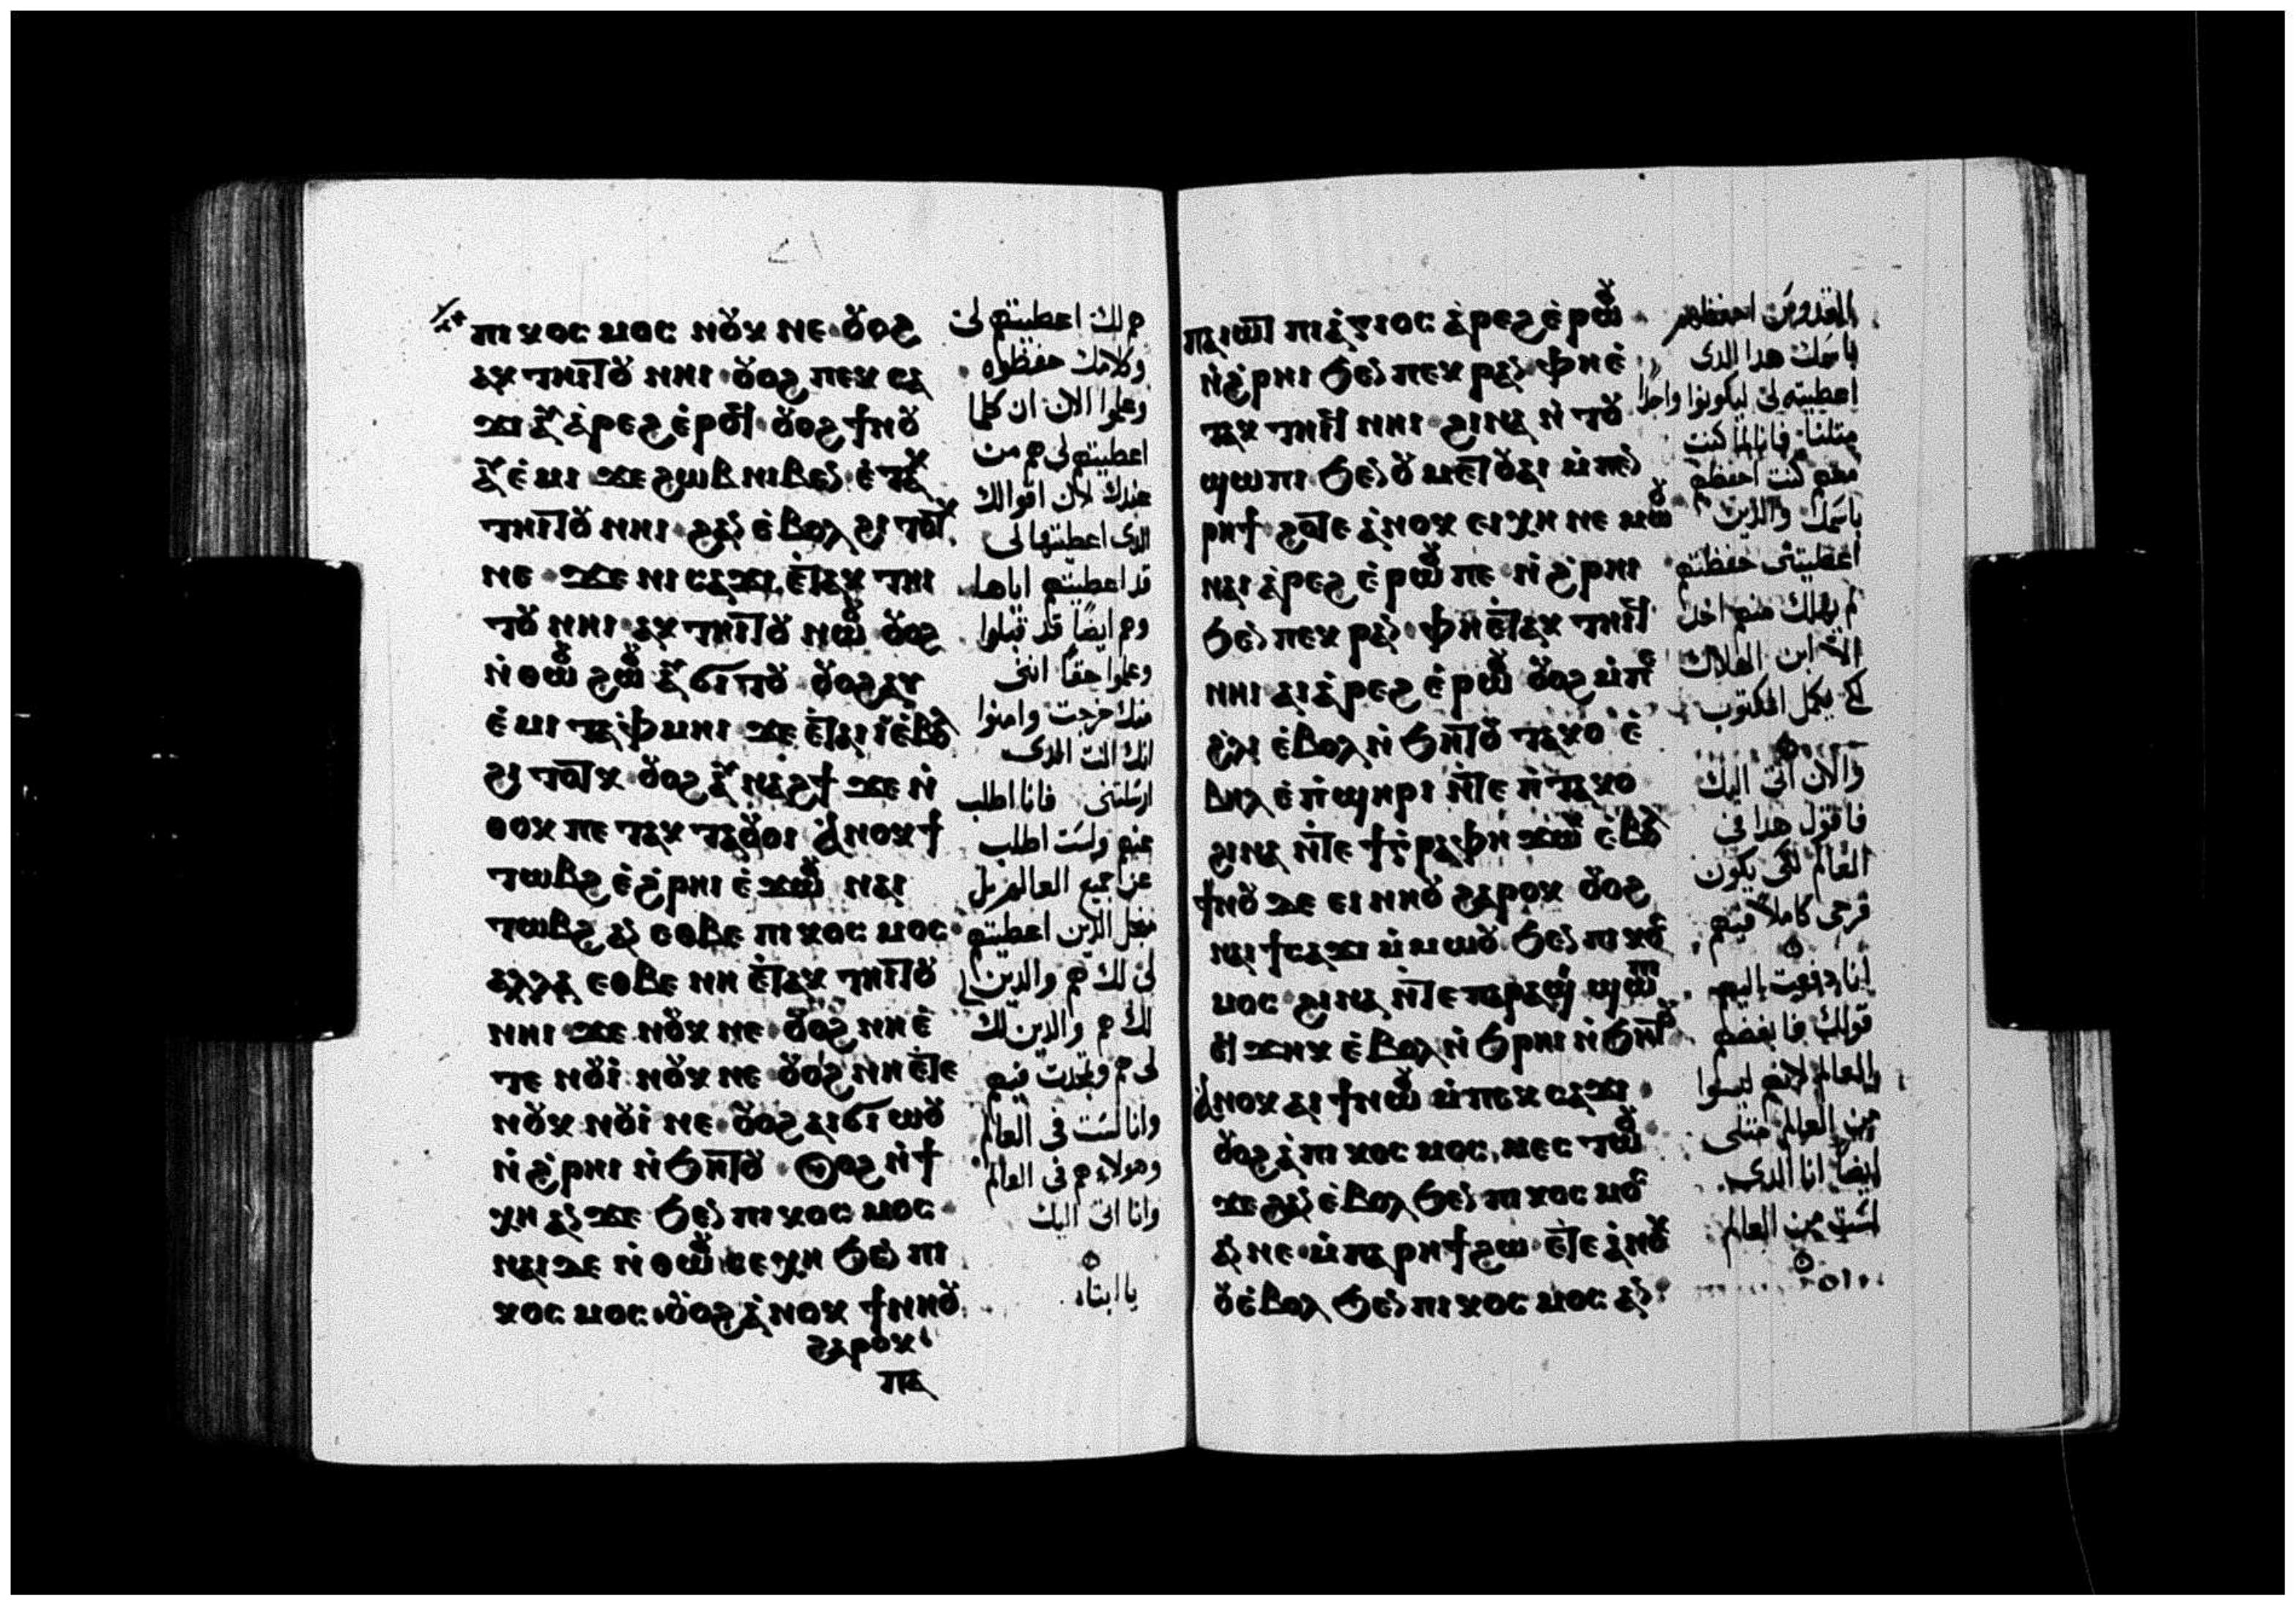 ⲡⲓⲕⲟⲥⲙⲟⲥ ⲛⲟⲩⲕ ⲛⲉ ⲟⲩⲟϩ
ⲁⲕⲧⲏⲓⲧⲟⲩ ⲛⲏⲓ ⲟⲩⲟϩ ⲡⲉⲕⲥⲁ
ϫⲓ ⲁⲩⲁ̀ⲣⲉϩ ⲉ̀ⲣⲟϥ ⲟⲩⲟϩ ϯⲛⲟⲩ
ⲁⲩⲉ̀ⲙⲓ ϫⲉ ϩⲱⲃ ⲛⲓⲃⲉⲛ ⲉ̀ⲧⲁⲕ
ⲧⲏⲓⲧⲟⲩ ⲛⲏⲓ ϩⲁⲛ ⲉ̀ⲃⲟⲗ ϩⲓⲧⲟⲧⲕ
ⲛⲉ ϫⲉ ⲛⲓⲥⲁϫⲓ ⲉ̀ⲧⲁⲕⲧⲏⲓ
ⲧⲟⲩ ⲛⲏⲓ ⲁⲕⲧⲏⲓⲧⲟⲩ ⲛⲱⲟⲩ ⲟⲩⲟϩ
ⲛ̀ⲑⲱⲟⲩ ϩⲱⲟⲩ ⲁⲩϭⲓⲧⲟⲩ ⲟⲩⲟϩ ⲁⲩ
ⲉ̀ⲙⲓ ⲧⲁⲫⲙⲏⲓ ϫⲉ ⲉ̀ⲧⲁⲓⲓ̀ ⲉ̀ⲃⲟⲗ
ϩⲓⲧⲟⲧⲕ ⲟⲩⲟϩ ⲁⲩⲛⲁϩϯ ϫⲉ ⲛ̀
ⲑⲟⲕ ⲡⲉⲧⲁⲕⲧⲁⲟⲩⲟⲓ ⲁ̀ⲛⲟⲕ ϯ
ⲧⲱⲃϩ ⲉ̀ϩ̀ⲣⲏⲓ ⲉ̀ϫⲱⲟⲩ ⲛⲁⲓ
ⲧⲱⲃϩ ⲁⲛ ⲉⲑⲃⲉ ⲡⲓⲕⲟⲥⲙⲟⲥ
ⲁⲗⲗⲁ ⲉⲑⲃⲉ ⲛⲏ ⲉ̀ⲧⲁⲕⲧⲏⲓⲧⲟⲩ
ⲛⲏⲓ ϫⲉ ⲛⲟⲩⲕ ⲛⲉ ⲟⲩⲟϩ ⲛⲏ ⲉ̀
ⲧⲉ ⲛⲟⲩⲓ̀ ⲛⲟⲩⲕ ⲛⲉ ⲟⲩⲟϩ ⲛⲏ ⲉ̀ⲧⲉ
ⲛⲟⲩⲕ ⲛⲟⲩⲓ̀ ⲛⲉ ⲟⲩⲟϩ ⲁⲓϭⲓⲱⲟⲩ
ⲛ̀ϩ̀ⲣⲏⲓ ⲛ̀ϧⲏⲧⲟⲩ ⲟⲩⲟϩ ⲛ̀ϯ
ⲭⲏ ⲁⲛ ϫⲉ ϧⲉⲛ ⲡⲓⲕⲟⲥⲙⲟⲥ
ⲛⲁⲓ ⲇⲉ ⲛ̀ⲑⲱⲟⲩ ⲥⲉⲭⲏ ϧⲉⲛ ⲡⲓ
ⲕⲟⲥⲙⲟⲥ ⲟⲩⲟϩ ⲁ̀ⲛⲟⲕ ϯⲛⲏⲟⲩ
ϩⲁⲣⲟⲕ
ⲡⲁ
هم لك اعطيتهم لى
وكلامك حفظوه
وعلموا الان ان كلما
اعطيتهم لى هم من
عندك لان اقوالك
الدى اعطيتها لى
قد اعطيتهم اياها
وهم ايضًا قد قبلوا
وعلموا حقًا اننى
منك خرجت وامنوا
انك انت الدى
ارسلتنى فانا اطلب
عنهم ولست اطلب
عن جميع العالم بل
من اجل الدين اعطيتهم
لى لك هم والدين
لك هم والدين لك
لى هم وتمجدت فيهم
وانا لست فى العالم
وهولاء هم فى العالم
وانا اتى اليك
يا ابتاه
ⲡⲁⲓⲱⲧ ⲡⲓⲁ̀ⲅⲓⲟⲥ ⲁ̀ⲣⲉϩ ⲉ̀ⲣⲱⲟⲩ
ⲛ̀ϩ̀ⲣⲏⲓ ϧⲉⲛ ⲡⲉⲕⲣⲁⲛ ⲫⲏ ⲉ̀
ⲧⲁⲕⲧⲏⲓϥ ⲛⲏⲓ ϩⲓⲛⲁ ⲛ̀ⲧⲟⲩ
ϣⲱⲡⲓ ϧⲉⲛ ⲟⲩⲙⲉⲧⲟⲩⲁⲓ ⲙ̀ⲡⲉⲛ
ⲣⲏϯ ϩⲟⲧⲉ ⲁ̀ⲛⲟⲕ ⲉⲓⲭⲏ ⲛⲉⲙⲱⲟⲩ
ⲛⲁⲓⲁ̀ⲣⲉϩ ⲉ̀ⲣⲱⲟⲩ ⲡⲉ ⲛ̀ϩ̀ⲣⲏⲓ
ϧⲉⲛ ⲡⲉⲕⲣⲁⲛ ⲫⲏ ⲉ̀ⲧⲁⲕⲧⲏⲓϥ
ⲛⲏⲓ ⲁⲓⲁ̀ⲣⲉϩ ⲉ̀ⲣⲱⲟⲩ ⲟⲩⲟϩ ⲙ̀ⲡⲉ
ϩ̀ⲗⲓ ⲉ̀ⲃⲟⲗ ⲛ̀ϧⲏⲧⲟⲩ ⲧⲁⲕⲟ ⲉ̀
ⲃⲏⲗ ⲉ̀ⲡ̀ϣⲏⲣⲓ ⲛ̀ⲧⲉ ⲛ̀ⲧⲁⲕⲟ
ϩⲓⲛⲁ ⲛ̀ⲧⲉ ϯⲅ̀ⲣⲁⲫⲏ ϫⲱⲕ ⲉ̀ⲃⲟⲗ
ϯⲛⲟⲩ ⲇⲉ ⲉⲓⲛⲏⲟⲩ ϩⲁⲣⲟⲕ ⲟⲩⲟϩ
ⲛⲁⲓ ϯⲥⲁϫⲓ ⲙ̀ⲙⲱⲟⲩ ϧⲉⲛ ⲡⲓⲕⲟⲥ
ⲙⲟⲥ ϩⲓⲛⲁ ⲛ̀ⲧⲉ ⲡⲁⲣⲁϣⲓ ϣⲱⲡⲓ
ⲉϥϫⲏⲕ ⲉ̀ⲃⲟⲗ ⲛ̀ϧⲣⲏⲓ ⲛ̀ϧⲏⲧⲟⲩ
ⲁ̀ⲛⲟⲕ ⲁⲓϯ ⲛⲱⲟⲩ ⲙ̀ⲡⲉⲕⲥⲁϫⲓ
ⲟⲩⲟϩ ⲁ̀ ⲡⲓⲕⲟⲥⲙⲟⲥ ⲙⲉⲥⲧⲱⲟⲩ
ϫⲉ ϩⲁⲛ ⲉ̀ⲃⲟⲗ ϧⲉⲛ ⲡⲓⲕⲟⲥⲙⲟⲥ
ⲁⲛ ⲛⲉ ⲙ̀ⲡⲁⲣⲏϯ ϩⲱ ⲉ̀ⲧⲉ ⲁ̀ⲛⲟⲕ
ⲟⲩⲉ̀ⲃⲟⲗ ϧⲉⲛ ⲡⲓⲕⲟⲥⲙⲟⲥ ⲁⲛ
القدوس احفظهم
باسمك هدا الدى
اعطيته لى ليكونوا واحدًا
متلنا فانا لما كنت
معهم كنت احفظهم
باسمك والدين
اعطيتنى حفظتهم
لم يهلك منهم احد
الا ابن الهلاك
لكى يكمل المكتوب
والان اتى اليك
فاقول هدا فى
العالم لكى يكون
فرحى كاملًا فيهم
انا دفعت اليهم
قولك فابغضهم
العالم لانهم ليسوا
من العالم متلى
ايضًا انا الدى
لست من العالم